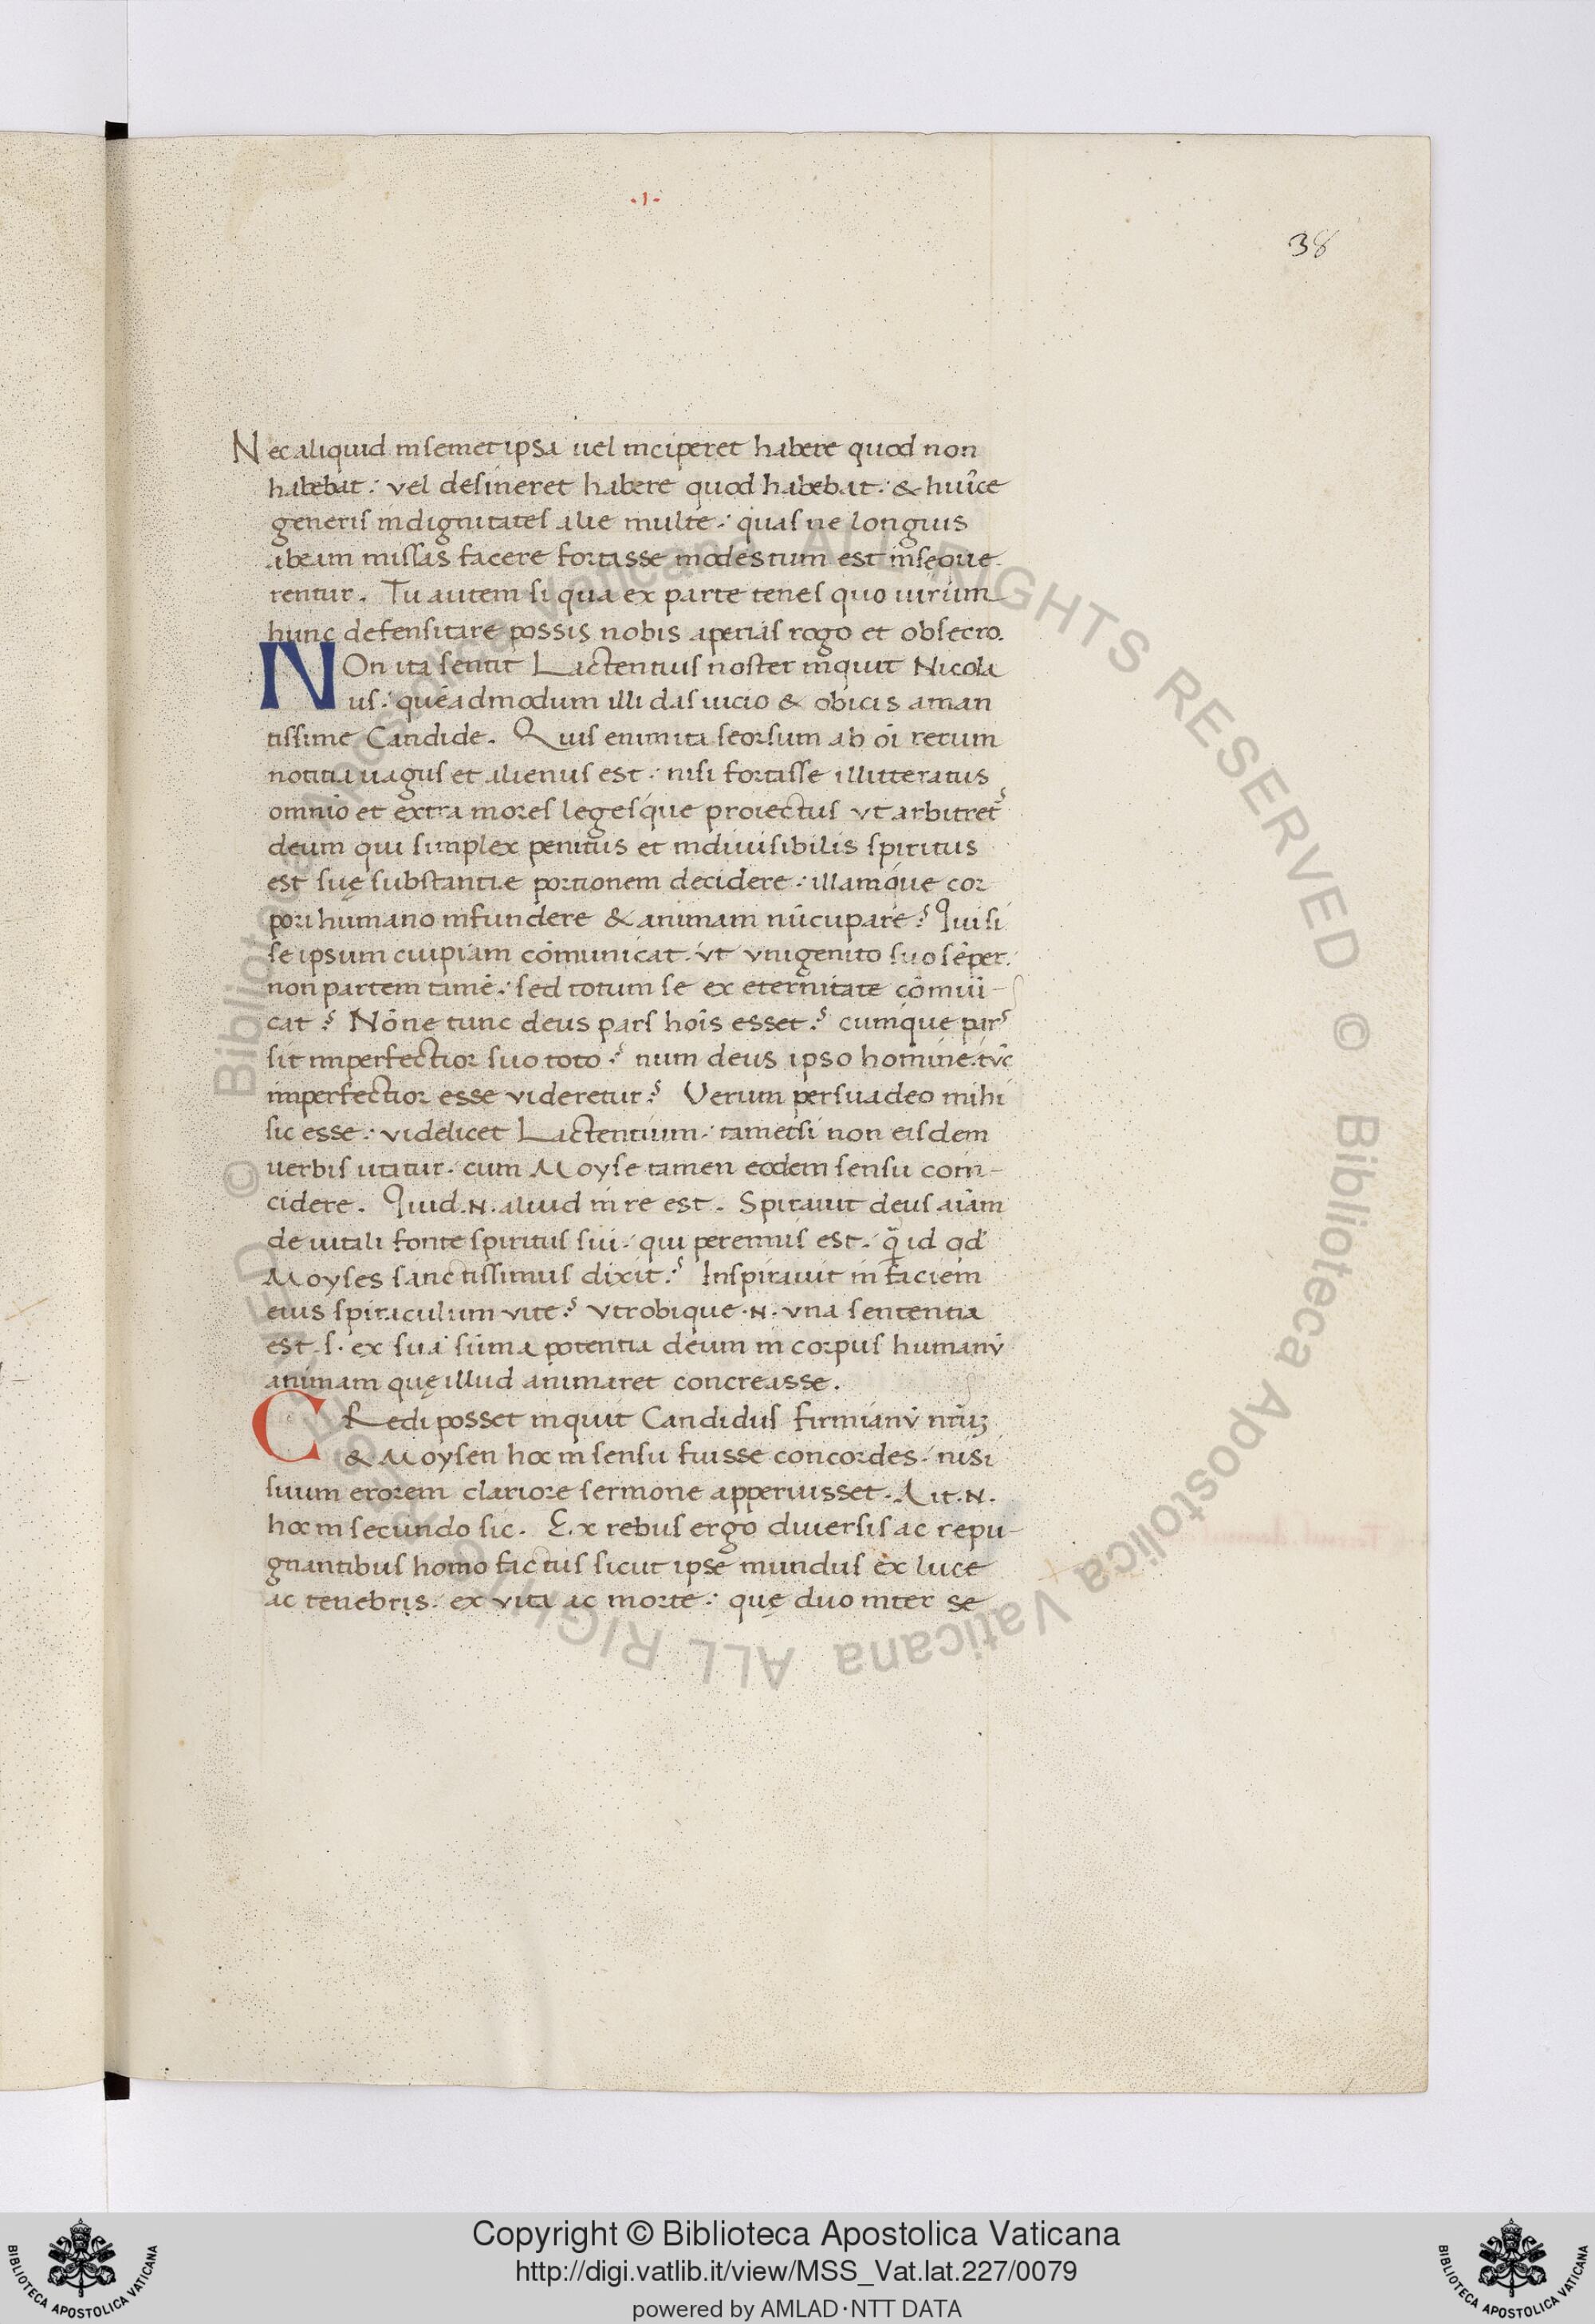 .1.
38
Nec aliquid insemet ipsa uel inciperet habere quod non
habebat: vel desineret habere quod habebat: & huiꝰce
generis indignitates alie multe: quas ne longius
abeam missas facere fortasse modestum est inseque-
rentur. Tu autem si qua ex parte tenes quo uirum
hunc defensitare possis nobis aperias rogo et obsecro.
NOn ita sentit Lactentius noster inquit Nicola
us: quēadmodum illi das uicio & obicis aman
tissime Candide. Quis enim ita seorsum ab oi̅ rerum
notitia uagus et alienus est: nisi fortasse illitteratus
omnīo et extra mores legesque proiectus vt arbitret᷑
deum qui simplex penitus et indiuisibilis spiritus
est suę substantie portionem decidere: illamque cor
pori humano infundere & animam nūcupare? Qui si
se ipsum cuipiam cōmunicat. vt vnigenito suo sēper.
non partem tamē: sed totum se ex eternitate cōmūi-
cat? Nōne tunc deus pars hoīs esset? cumque pars
sit imperfectior suo toto? num deus ipso homine tūc
imperfectior esse videretur? Verum persuadeo mihi
sic esse: videlicet Lactentium: tametsi non eisdem
uerbis utitur. cum Moyse tamen eodem sensu coin-
cidere. Quid .N. aliud in re est. Spirauit deus aīam
de uitali fonte spiritus sui: qui perennis est: q̄ id qd̛
Moyses sanctissimus dixit? Inspirauit in faciem
eius spiraculum vite? vtrobique .N. vna sententia
est .s. ex sua sūma potentia deum in corpus humanū
animam quę illud animaret concreasse.
CRedi posset inquit Candidus firmianū nr̄uꝫ
& Moysen hoc in sensu fuisse concordes: nisi
suum erorem clariore sermone apperuisset. Ait .N.
hoc in secundo sic. Ex rebus ergo diuersis ac repu-
gnantibus homo factus sicut ipse mundus ex luce
ac tenebris. ex vita ac morte: quę duo inter se
© Biblioteca Apostolica Vaticana ALL RIGHTS RESERVED © Biblioteca Apostolica Vaticana ALL RIGHTS RESERVED
Copyright © Biblioteca Apostolica Vaticana
http://digi.vatlib.it/view/MSS_Vat.lat.227/0079
powered by AMLAD·NTT DATA
BIBLIOTECA APOSTOLICA VATICANA
BIBLIOTECA APOSTOLICA VATICANA